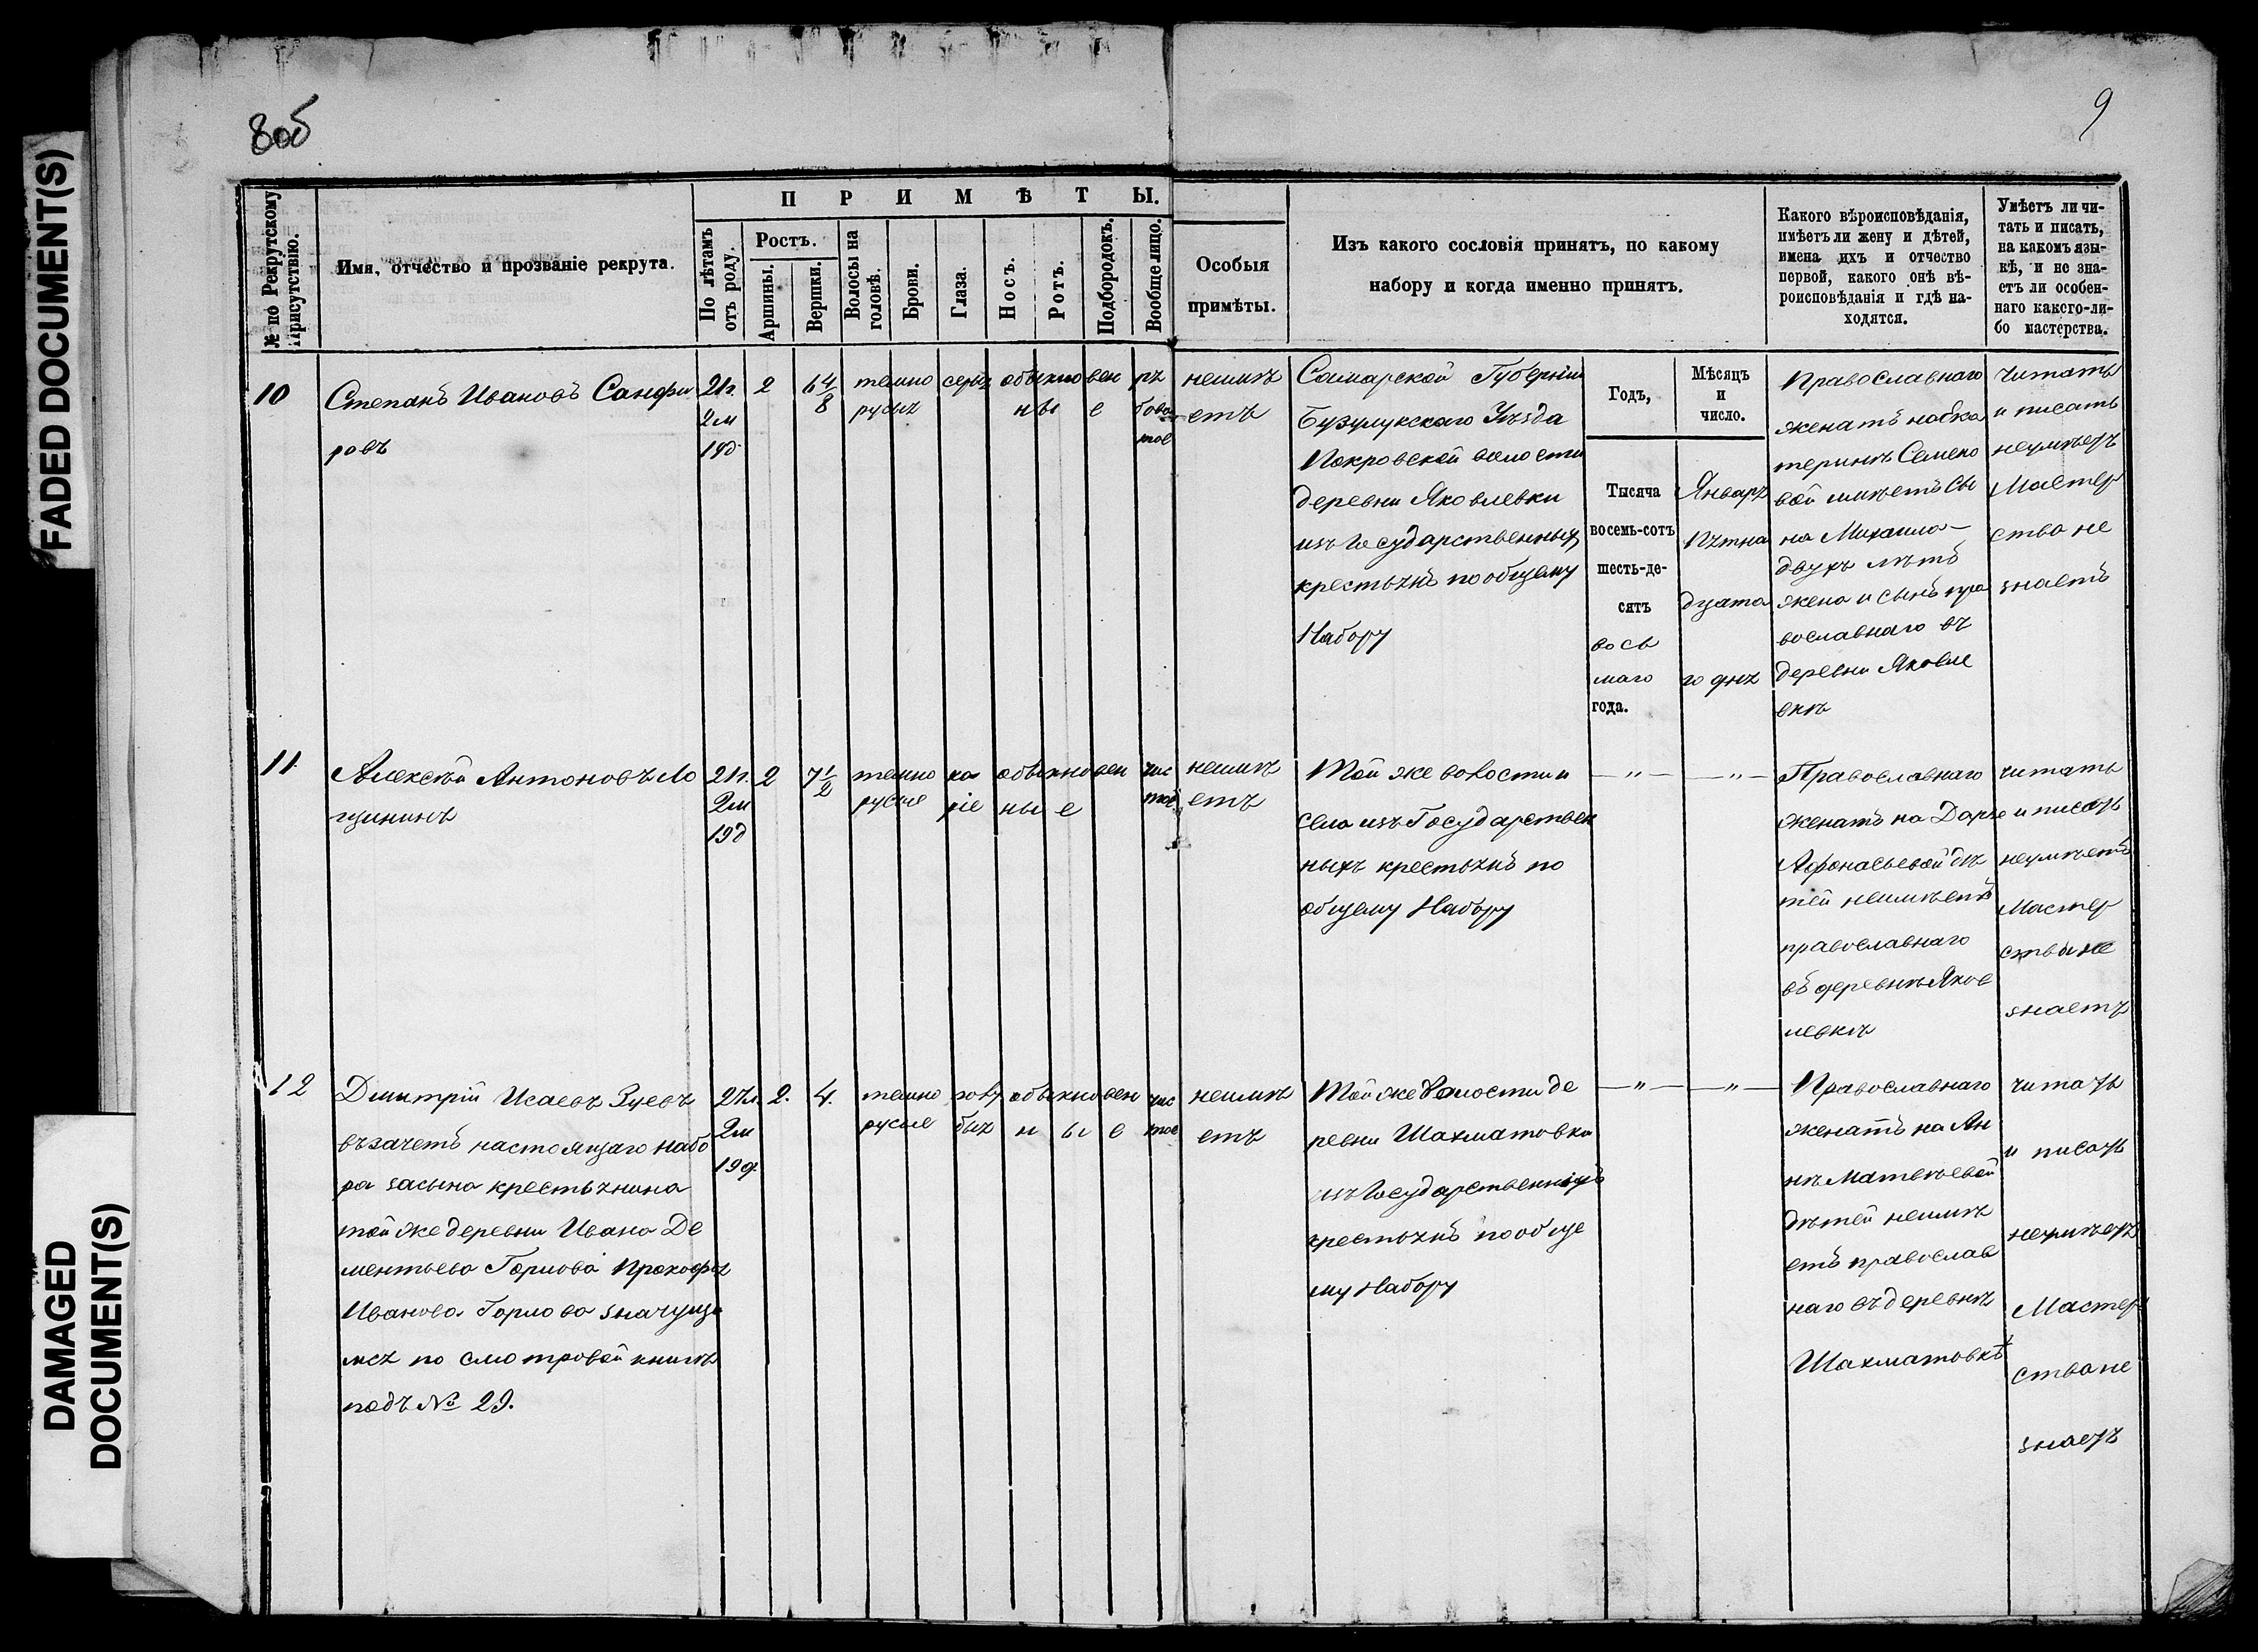 FADED DOCUMENT(S)
DAMAGED
DOCUMENT(S)
8об
9
№ по Рекрутскому
Присутствію.
Имя, отчество и прозваніе рекрута.
ПРИМѢТЫ.
По лѣтамъ
отъ роду.
Ростъ.
Аршины.
Вершки.
Волосы на
головѣ.
Брови.
Глаза.
Носъ.
Ротъ.
Подбородокъ.
Вообще лицо.
Особыя
примѣты.
Изъ какого сословія принятъ, по какому
набору и когда именно принятъ.
Какого вѣроисповѣданія,
имѣетъ ли жену и дѣтей,
имена ихъ и отчество
первой, какого онѣ вѣ-
роисповѣданія и гдѣ на-
ходятся.
Умѣетъ ли чи-
тать и писать,
на какомъ язы-
кѣ, и не зна-
етъ ли особен-
наго какого-ли-
бо мастерства.
10
Степанъ Ивановъ Санфи
ровъ
21г.
2м
19д.
2
6 4/8
темно
русыя
серыя
обыкновен
ные
ря
бова
тое
неимѣ
етъ
Самарской Губерніи
Бузулукскаго Уѣзда
Покровской волости
деревни Яковлевки
изъ Государственныхъ
крестьянъ по общему
Набору
Годъ,
Тысяча
восемь-сотъ
шесть-де-
сятъ
вось
маго
года.
Мѣсяцъ
и
число.
Января
Пятна
дцата
го дня
Православнаго
женатъ на Ека
теринѣ Семено
вой имѣетъ сы
на Михаила
двухъ лѣтъ
жена и сынъ пра
вославнаго въ
деревни Яковле
вкѣ
читать
и писать
неумѣетъ
Мастер
ства не
знаетъ
11
Алексѣй Антоновъ Ло
щининъ
21г.
2м
19д
2
7 1/2
темно
русые
ка
ріе
обыкновен
ные
чис
тое
неимѣ
етъ
Той же волости и
села изъ Государствен
ныхъ крестьянъ по
общему Набору
— " —
— " —
Православнаго
женатъ на Дарье
Афонасьевой дѣ
тей неимѣетъ
православнаго
въ деревнѣ Яков
левкѣ
читать
и писать
неумѣетъ
Мастер
ства не
знаетъ
12
Дмитрій Исаевъ Зуевъ
въ зачетъ настоящаго набо
ра за сына крестьянина
той же деревни Ивана Де
ментьева Горлова Прокофья
Иванова Горлова значуща
мся по смотровой книгѣ
подъ № 29.
27л.
2м
19д.
2.
4.
темно
русые
голу
быя
обыкновен
ные
чис
тое
неимѣ
етъ
Той же Волости де
ревни Шахматовки
изъ Государственныхъ
крестьянъ по обще
му Набору
— " —
— " —
Православнаго
женатъ на Ан
нѣ Матвѣевой
дѣтей неимѣ
етъ православ
наго въ деревнѣ
Шахматовкѣ
читать
и писать
неумѣетъ
Мастер
ства не
знаетъ